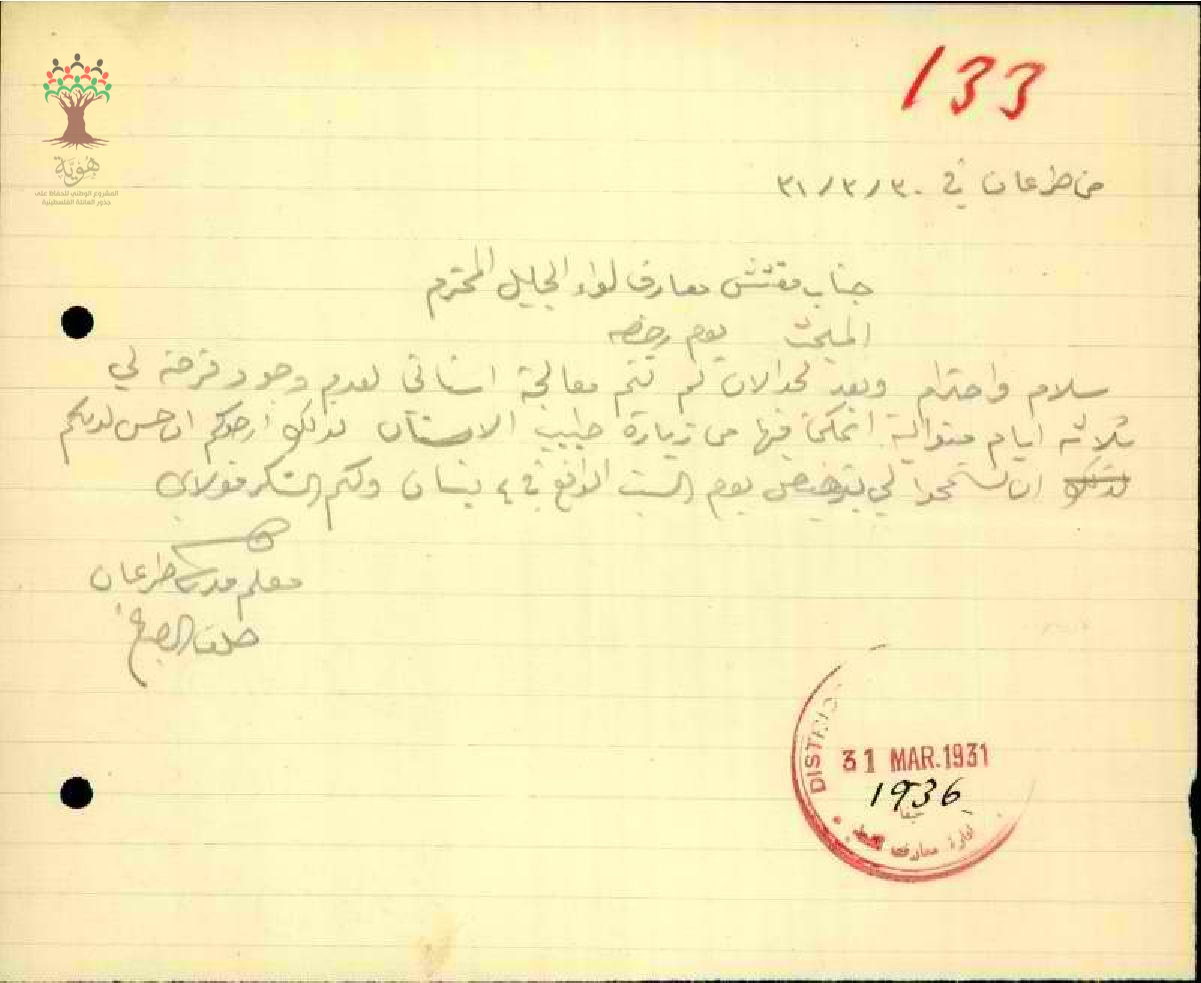 133
هُويّة
المشروع الوطني للحفاظ على
جذور العائلة الفلسطينية
من طرعان في ٣٠/٣/٣١
جناب مفتش معارف لواء الجليل المحترم
المبحث يوم رخصه
سلام واحترام وبعد لحد الان لم تتم معالجة اسناني لعدم وجود فرصة لي
ثلاثه ايام متوالية اتمكن فيها من زيارة طبيب الاسنان لذلك ارجوكم ان حسن لديكم
ان تسمحوا لي بترخيص يوم السبت الواقع في ٤ نيسان ولكم الشكر مولاي
معلم مدرسة طرعان
31 MAR.1931
1936
حيفا
ادارة معارف